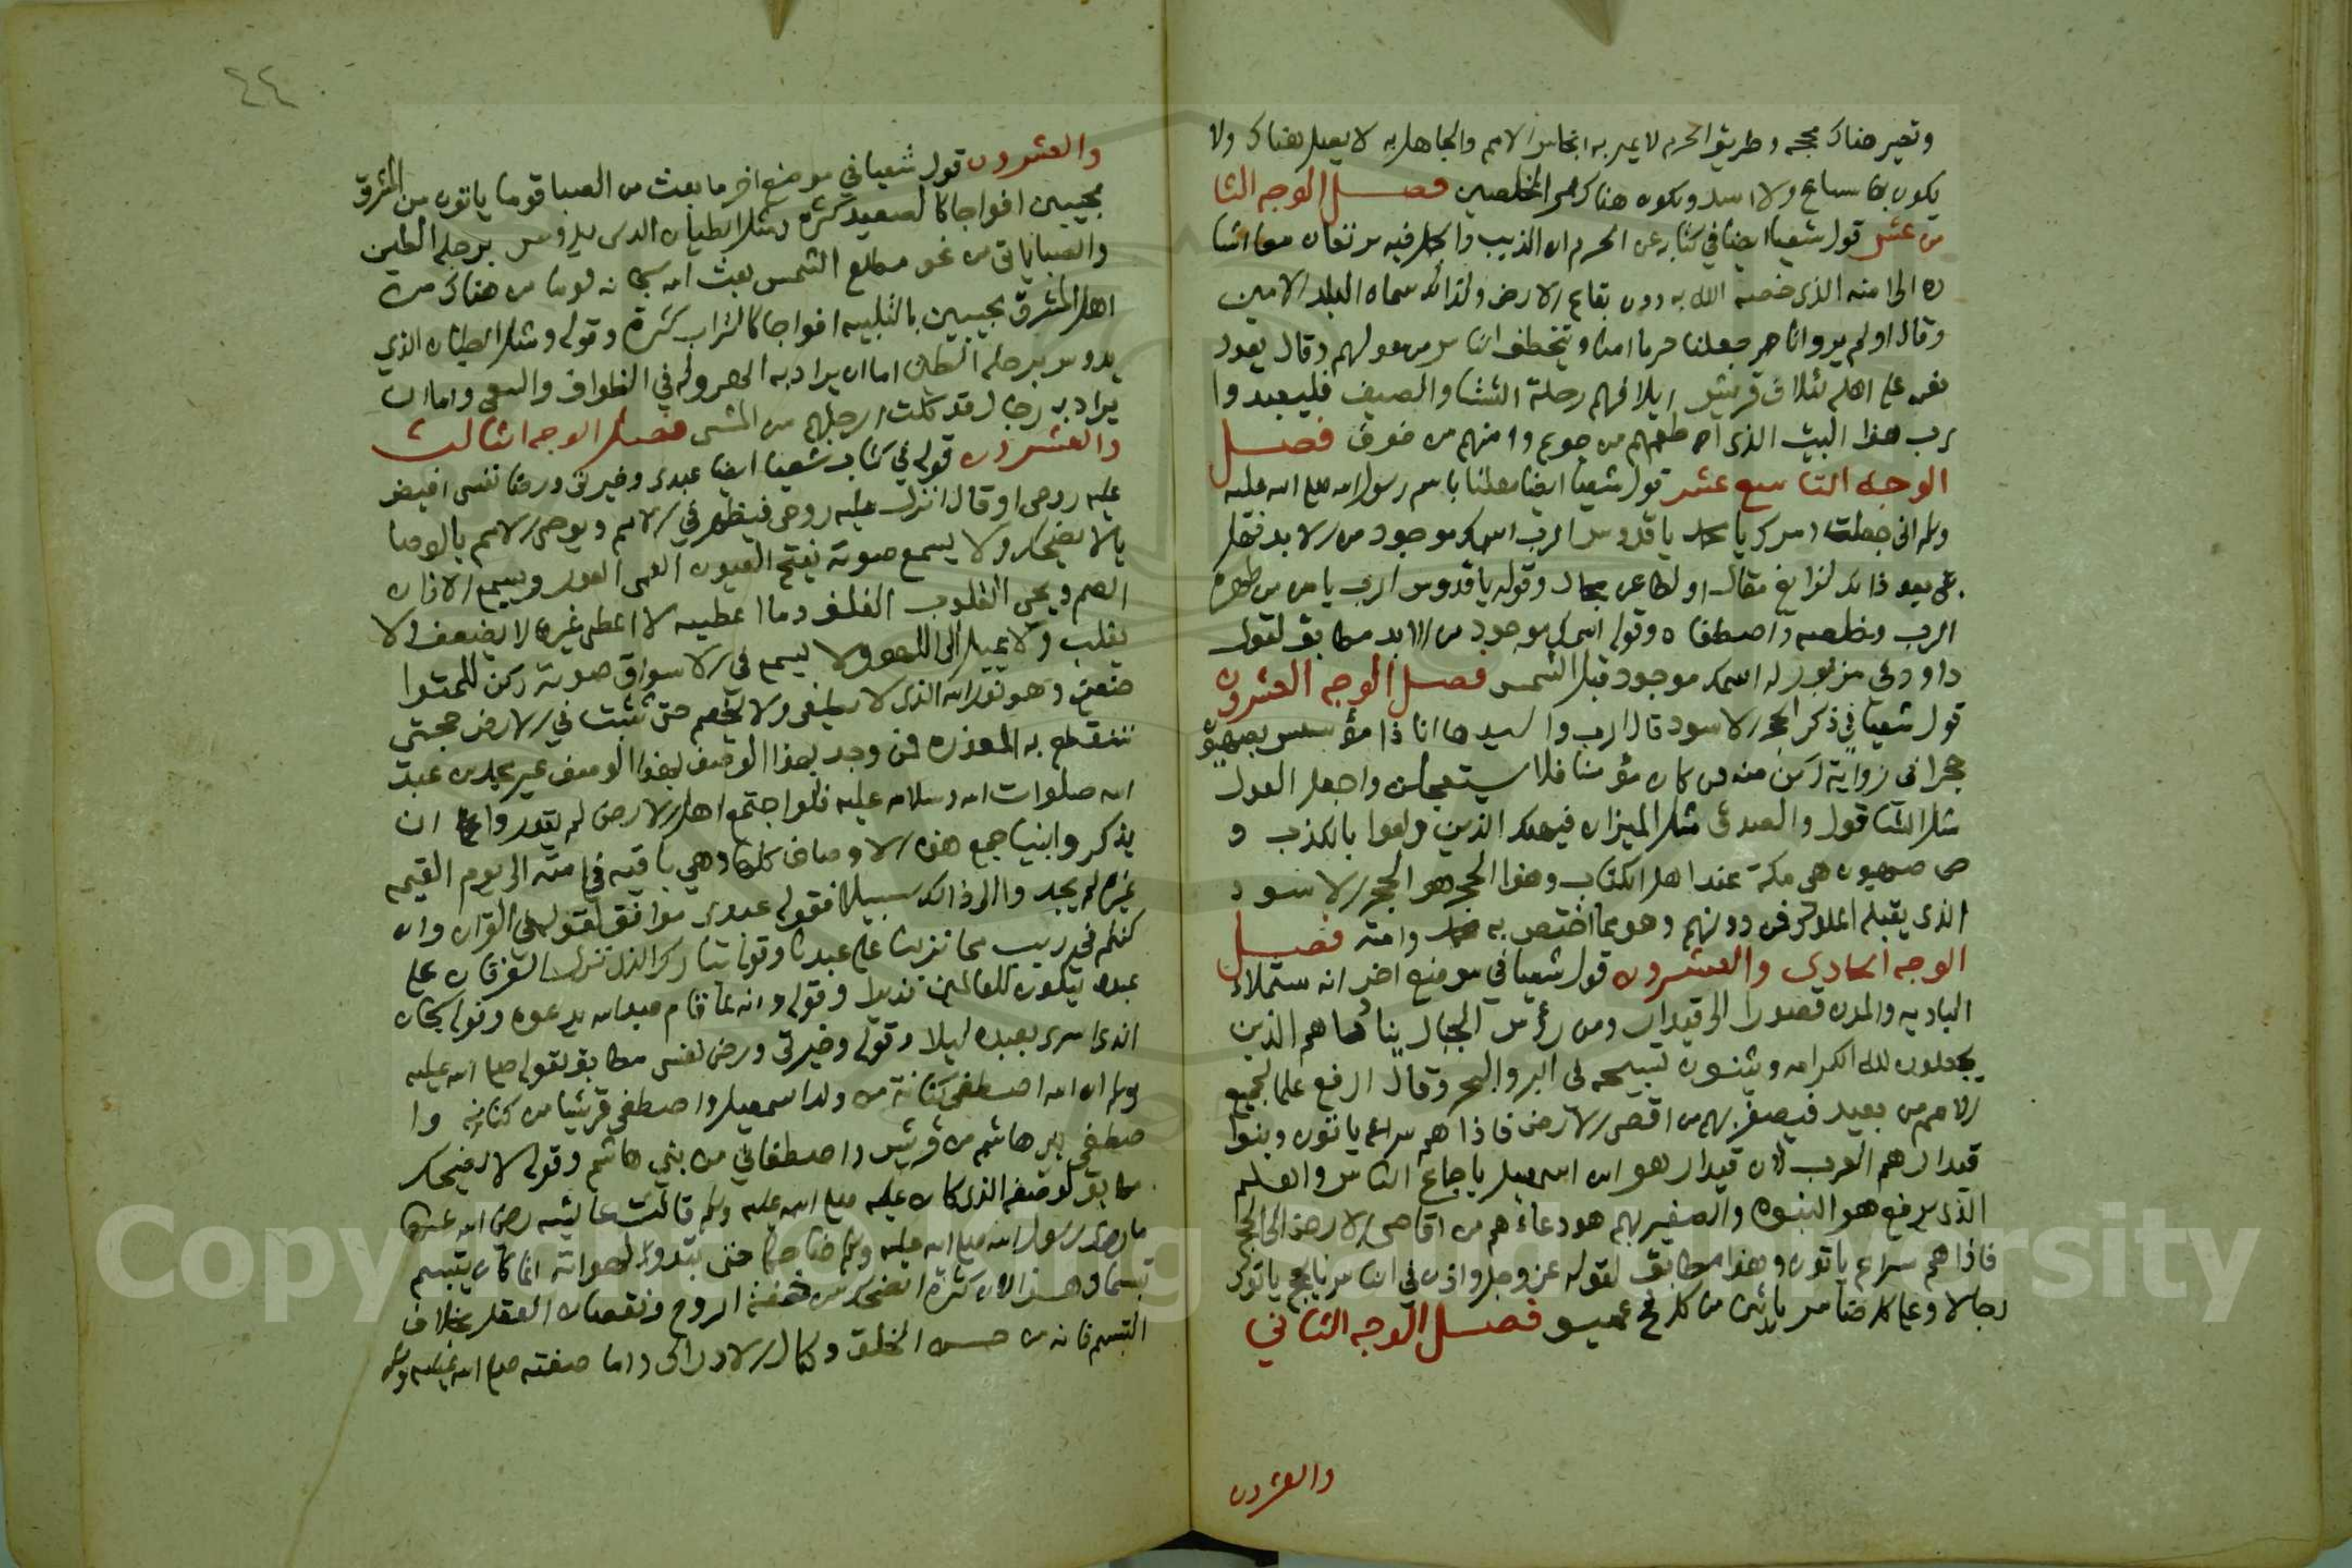 وتصير هناك محجه وطريق الحرم لا يمر به انجاس الامم والجاهل به لا يصل هناك ولا
يكون بها سباع ولا اسد ويكون هناك ممر المخلصين فصل الوجه الثا
من عشر قول شعيا ايضا في كتابه عن الحرم ان الذيب والحمل فيه يرتعان معا اشا
ره الى امنه الذى خصه الله به دون بقاع الارض ولذالك سماه البلد الامين
وقال اولم يروا انا جعلنا حرما امنا ويتخطف الناس من حولهم وقال يعدد
نعمه على اهله لئلاف قريش ايلافهم رحلة الشتا والصيف فليعبدوا
رب هذا البيت الذى اطعمهم من جوع وامنهم من خوف فصل
الوجه التاسع عشر قول شعيا ايضا معلنا باسم رسول الله صلى الله عليه
وسلم انى جعلت امرك يا محمد يا قدوس الرب اسمك موجود من الابد فهل
بقى بعد ذالك لزائغ مقال او لطاعن مجال وقوله يا قدوس الرب يا من طهره
الرب وخلصه واصطفاه وقوله اسمك موجود من الابد مطابق لقول
داوود في مزمور له اسمك موجود قبل الشمس فصل الوجه العشرون
قول شعيا في ذكر الحجر الاسود قال الرب والسيد ها انا ذا مؤسس بصهيون
حجرا في زاوية ركن منه فمن كان مؤمنا فلا يستعجلن واجعل العدل
مثل الشاقول والصدق مثل الميزان فيهلك الذين ولعوا بالكذب و
ص صهيون هي مكة عند اهل الكتاب وهذا الحجر هو الحجر الاسود
الذى يقبله الملوك فمن دونهم وهو مما اختص به محمد وامته فصل
الوجه الحادي والعشرون قول شعيا في موضع اخر انه ستملاء
الباديه والمدن قصورا الى قيدار ومن رؤس الجبال ينادوا هم الذين
يجعلون لله الكرامه ويثنون تسبيحه في البر والبحر وقال ارفع علما لجميع
الامم من بعيد فيصفر بهم من اقصى الارض فاذا هم سراع ياتون وبنوا
قيدار هم العرب لان قيدار هو ابن اسمعيل باجماع الناس والعلم
الذى يرفع هو النبوه والصفير بهم هو دعاءهم من اقاصى الارض الى الحج
فاذا هم سراع ياتون وهذا مطابق لقوله عز وجل واذن في الناس بالحج ياتوك
رجالا وعلى كل ضامر ياتين من كل فج عميق فصل الوجه الثاني
والعشرون
٤٤
والعشرون قول شعيا في موضع اخر ما بعث من الصبا قوما ياتون من المشرق
مجيبين افواجا كالصعيد كثرة ومثل الطيان الذى يدوس برجله الطين
والصبا ياتى من نحو مطلع الشمس بعث الله سبحانه قوما من هناك من
اهل المشرق مجيبين بالتلبيه افواجا كالتراب كثرة وقوله ومثل الطيان الذي
يدوس برجله الطين اما ان يراد به الهروله في الطواف والسعى واما ان
يراد به رجال قد كلت ارجلهم من المشى فصل الوجه الثالث
والعشرون قوله في كتاب شعيا ايضا عبدى وخيرتى ورضا نفسى افيض
عليه روحى او قال انزل عليه روحى فيظهر في الامم ويوصى الامم بالوصا
يا لا يضحك ولا يسمع صوته يفتح العيون العمى العور ويسمع الاذان
الصم ويحي القلوب الغلف وما اعطيه لا اعطى غيره لا يضعف ولا
يغلب ولا يميل الى اللهو ولا يسمع في الاسواق صوته ركن للمتوا
ضعين وهو نور الله الذى لا يطفى ولا يخصم حتى تثبت في الارض حجتى
تنقطع به المعذره فمن وجد بهذا الوصف غير محمد بن عبد
الله صلوات الله وسلامه عليه فلو اجتمع اهل الارض لم يقدروا على ان
يذكروا نبيا جمع هذه الاوصاف كلها وهي باقيه في امته الى يوم القيمه
غيره لم يجدوا الى ذالك سبيلا فقوله عبدى موافق لقوله في القران وان
كنتم في ريب مما نزلنا على عبدنا وقوله تبارك الذى نزل الفرقان على
عبده ليكون للعالمين نذيرا وقوله وانه لما قام عبد الله يدعوه وقوله سبحان
الذى اسرى بعبده ليلا وقوله وخيرتى ورضى نفسى مطابق لقوله صلى الله عليه
وسلم ان الله اصطفى كنانة من ولد اسمعيل واصطفى قريشا من كنانه وا
صطفى بني هاشم من قريش واصطفاني من بني هاشم وقوله لا يضحك
مطابق لوصفه الذى كان عليه صلى الله عليه وسلم قالت عايشه رضى الله عنها
ما رايت رسول الله صلى الله عليه وسلم ضاحكا حتى تبدوا لهواته انما كان يتبسم
تبسما وهذا لان كثرة الضحك من خفة الروح ونقصان العقل بخلاف
التبسم فانه من حسن الخلق وكمال الادراك واما صفته صلى الله عليه وسلم